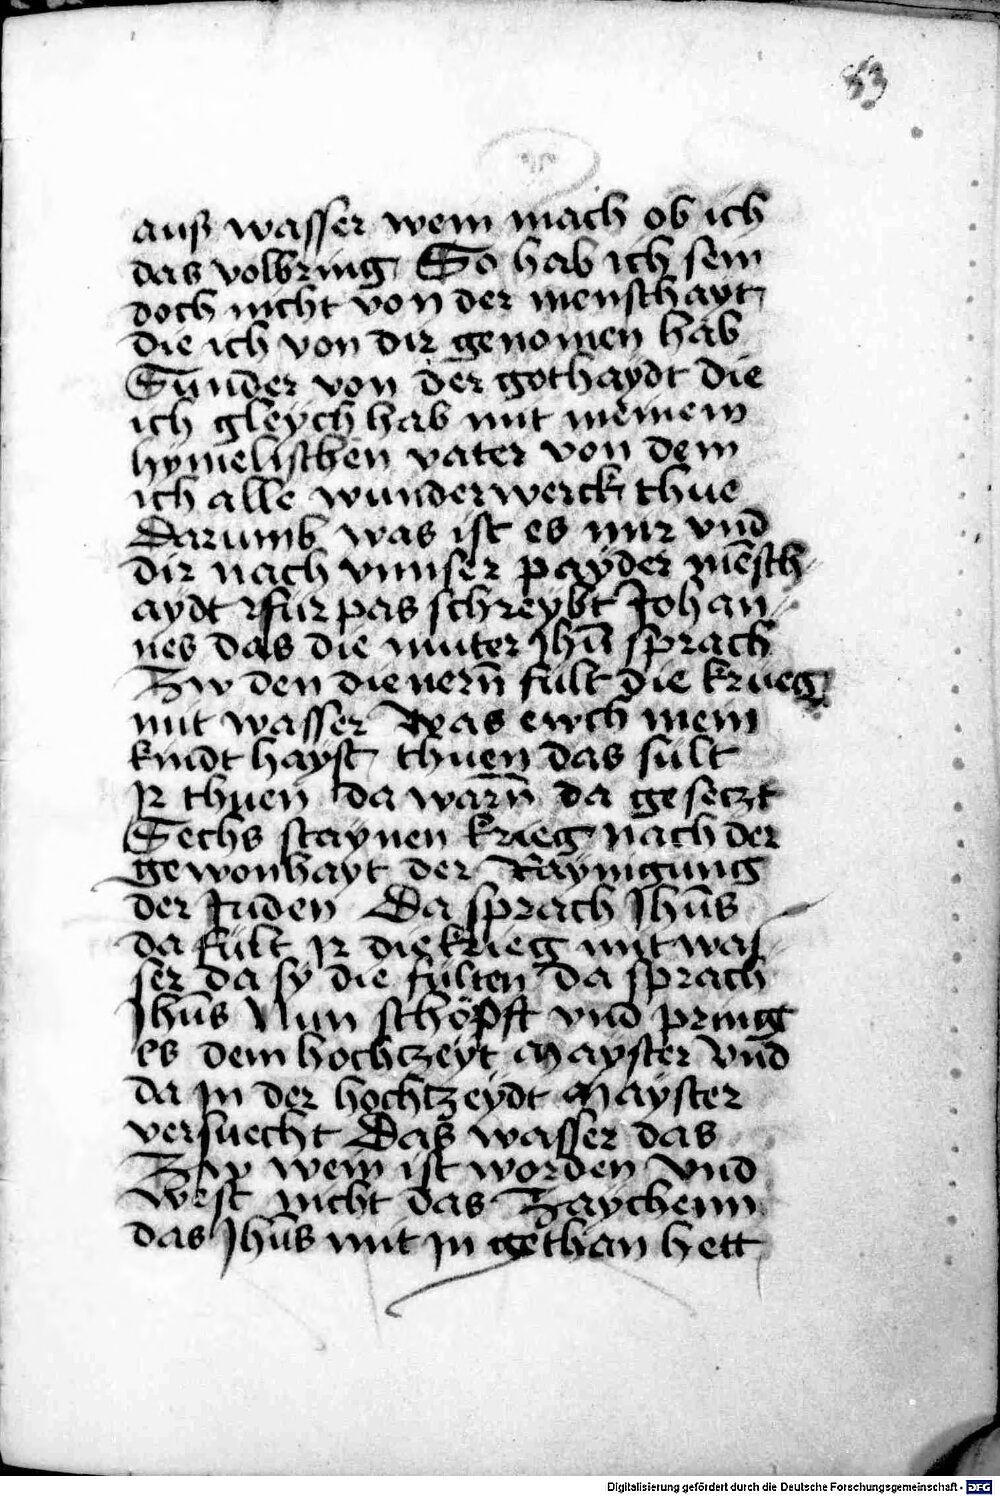 83
auß wasser wein mach ob ich
das volbring So hab ich sein
doch nicht von der menschayt
die ich von dir genomen hab
Sunder von der gothaydt die
ich gleych hab mit meinem
hymelischen vater von dem
ich alle wunderwerck thue
Darumb was ist es mir vnd
dir nach vnnser payder mēsch
aydt fur pas schreybt Johan
nes das die muter Jhū sprach
Zw den dienern̄ fult die krueg
mit wasser Was ewch mein
kindt hayst thuen das sült
Jr thuen da warn̄ da gesetzt
Sechs staynen krieg nach der
gewonhayt der Raynigung
der Juden Da sprach Jhūs
da fült Jr die krieg mit was
ser da sy die fulten da sprach
Jhūs Nun schöpfft vnd pringt
es dem hochtzeyt Mayster Vnd
da Jn der hochtzeydt Mayster
versuecht Das wasser das
Zw wein ist worden Vnd
West nicht das Zaychenn
das Jhūs mit Jn gethan hett
Digitalisierung gefördert durch die Deutsche Forschungsgemeinschaft - DFG